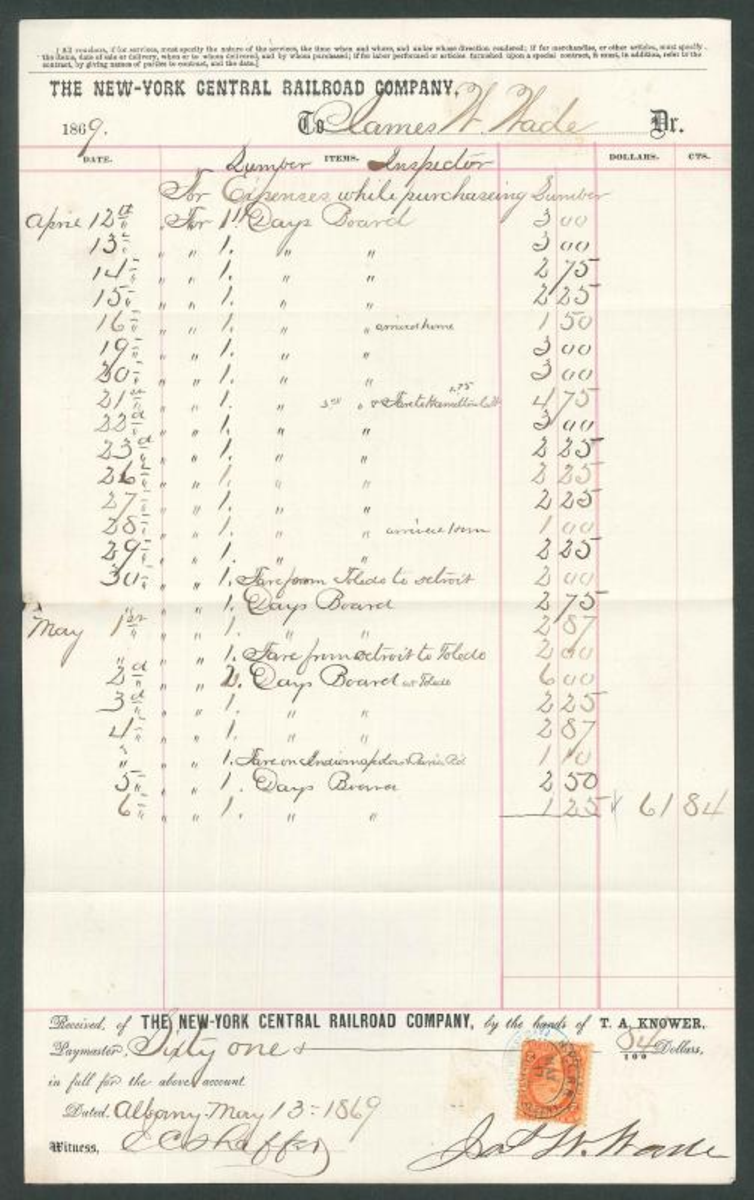 [ All vouchers, if for services, must specify the nature of the services, the time when and where, and under whose direction rendered; if for merchandise, or other articles, must specify
the items, date of sale or delivery, when or to whom delivered, and by whom purchased; if for labor performed or articles furnished upon a special contract, it must, in addition, refer to the
contract, by giving names of parties to contract, and the date.]
THE NEW-YORK CENTRAL RAILROAD COMPANY,
1869. To James W. Wade Dr.
DATE. Lumber ITEMS. Inspector DOLLARS. CTS.
For Expenses while purchaseing Lumber
April 12th For 1 Days Board 3 00
13 " " " 1. " " 3 00
14 " " " 1. " " 2 75
15 " " " 1. " " 2 25
16 " " " 1. " " arrived home 1 50
19 " " " 1. " " 3 00
20 " " " 1. " " 3 00
21st " " 1. " 3.00 " & Fare to Hamilton 1.75 4 75
22d " " 1. " " 3 00
23d " " 1. " " 2 25
26 " " " 1. " " 2 25
27 " " " 1. " " 2 25
28 " " " 1. " " arrived 1 00
29 " " " 1. " " 2 25
30 " " " 1. Fare from Toledo to detroit 2 00
" " " 1. Days Board 2 75
May 1st " " 1. " " 2 87
" " " 1. Fare from detroit to Toledo 2 00
2d " " 2. Days Board at Toledo 6 00
3d " " 1. " " 2 25
4 " " " 1. " " 2 87
" " " 1. Fare on 1 10
5 " " " 1. Days Board 2 50
6 " " " 1. " " 1 25 61 84
Received, of THE NEW-YORK CENTRAL RAILROAD COMPANY, by the hands of T. A. KNOWER,
Paymaster, Sixty one & 84/100 Dollars,
in full for the above account
Dated. Albany. May 13 = 1869
Witness, E C Shaffer Jas W. Wade